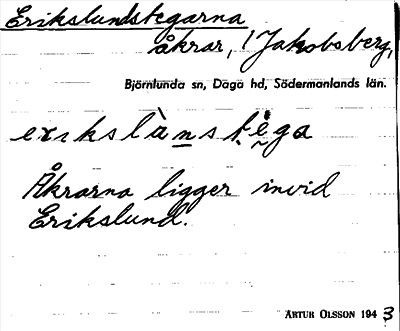 Erikslundstegarna
åkrar, Jakobsberg,
Björnlunda sn, Daga hd, Södermanlands län.
erikslànstḙ̀ga
Åkrarna ligger invid
Erikslund.
ARTUR OLSSON 1943